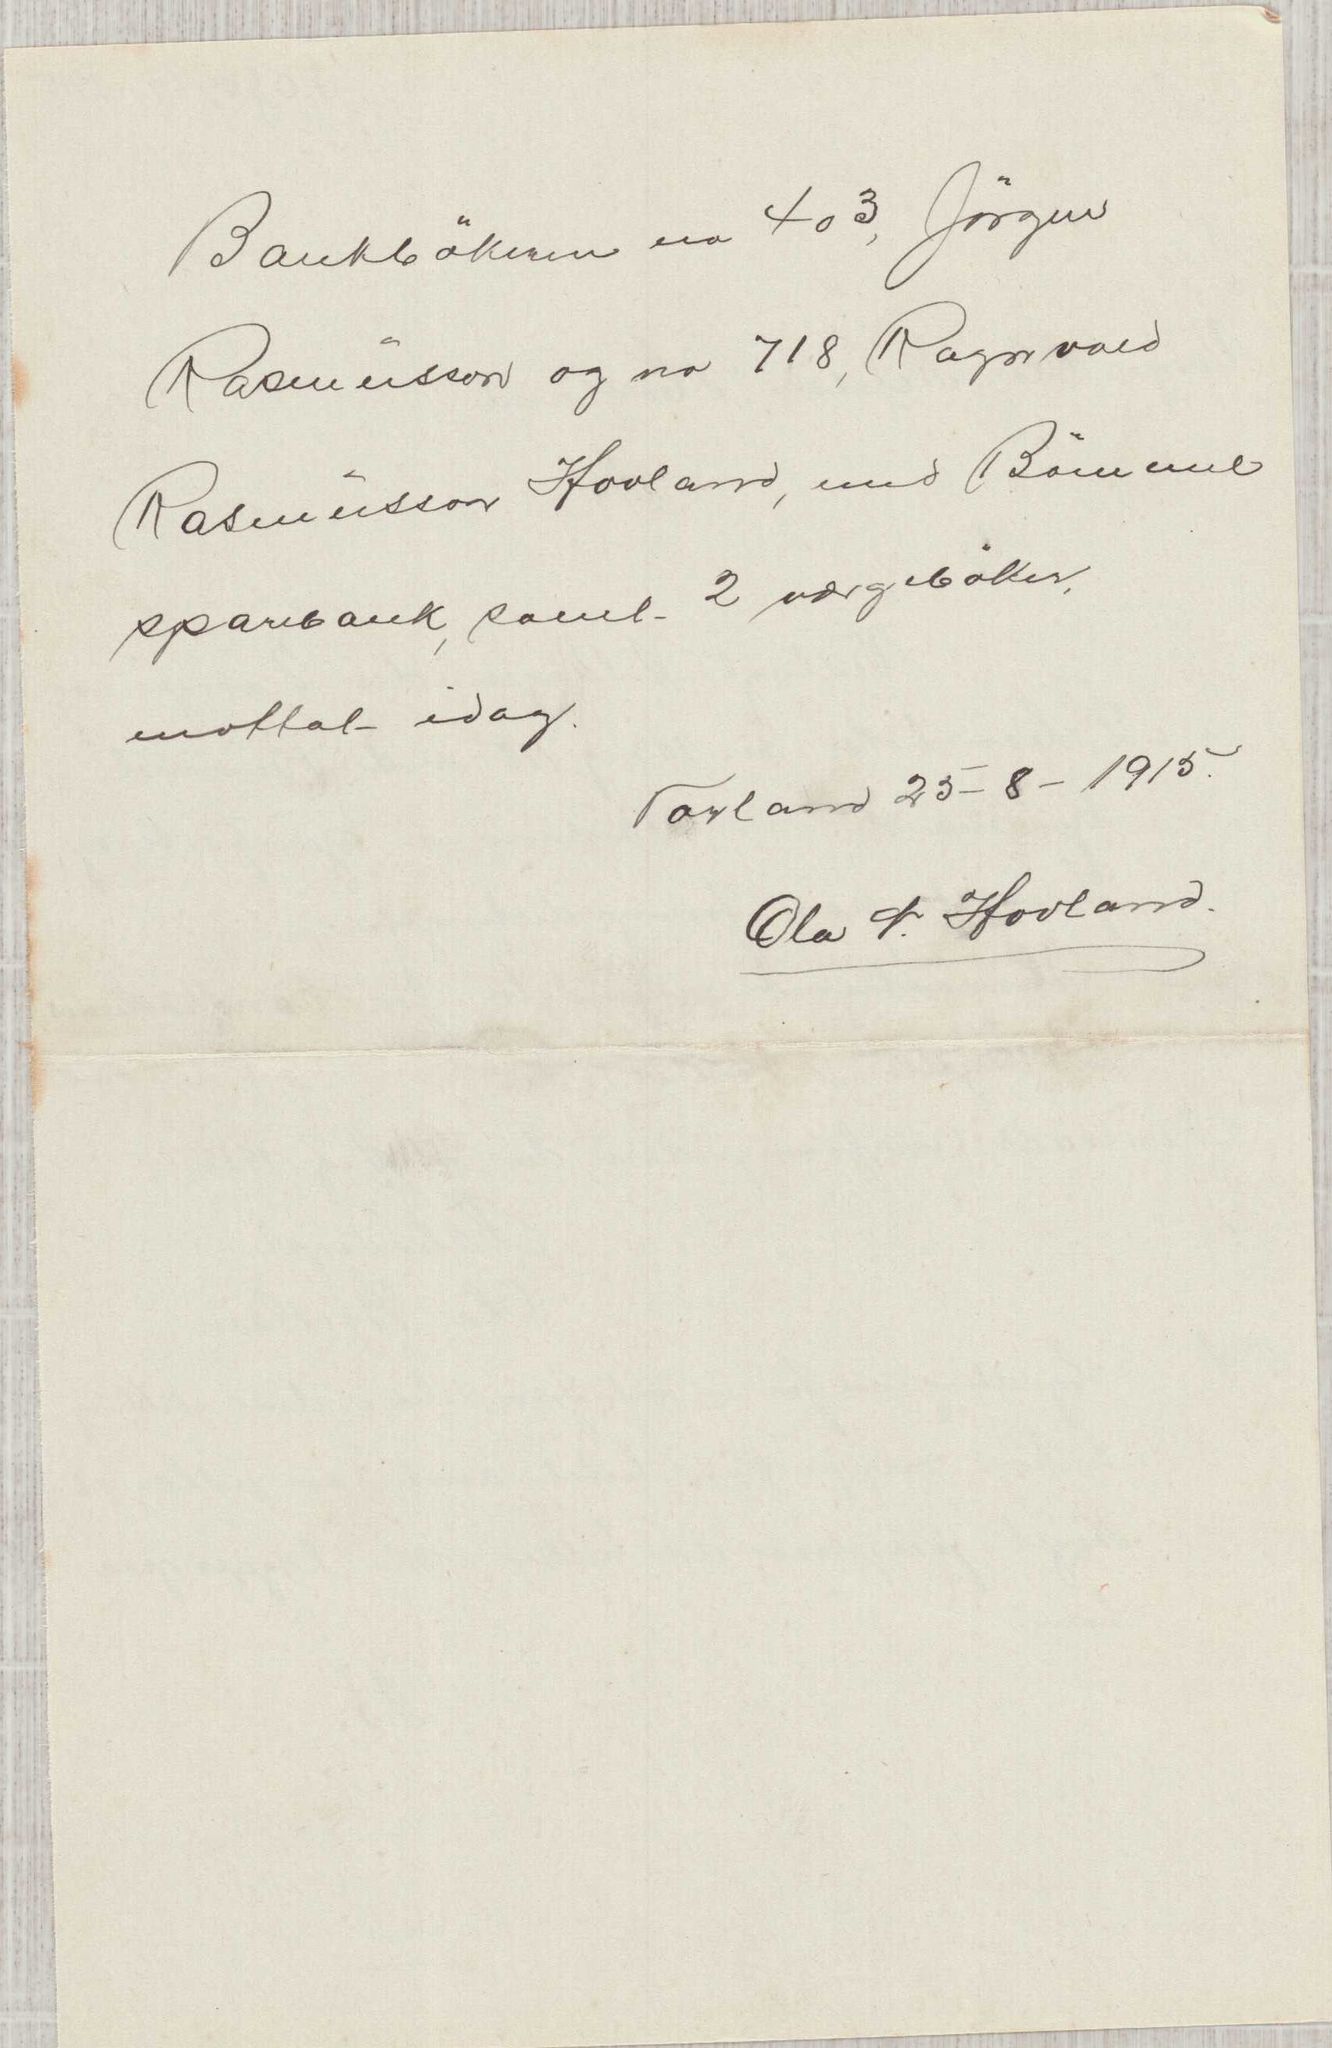 Bankbökerne no 403, Jörgen
Rasmusson og no 718, Ragnvald
Rasmusson Hovland, med Bömmel
sparebank, samt 2 værgebøker,
mottat idag.
25-8-1915.
Ola N. Hovland.